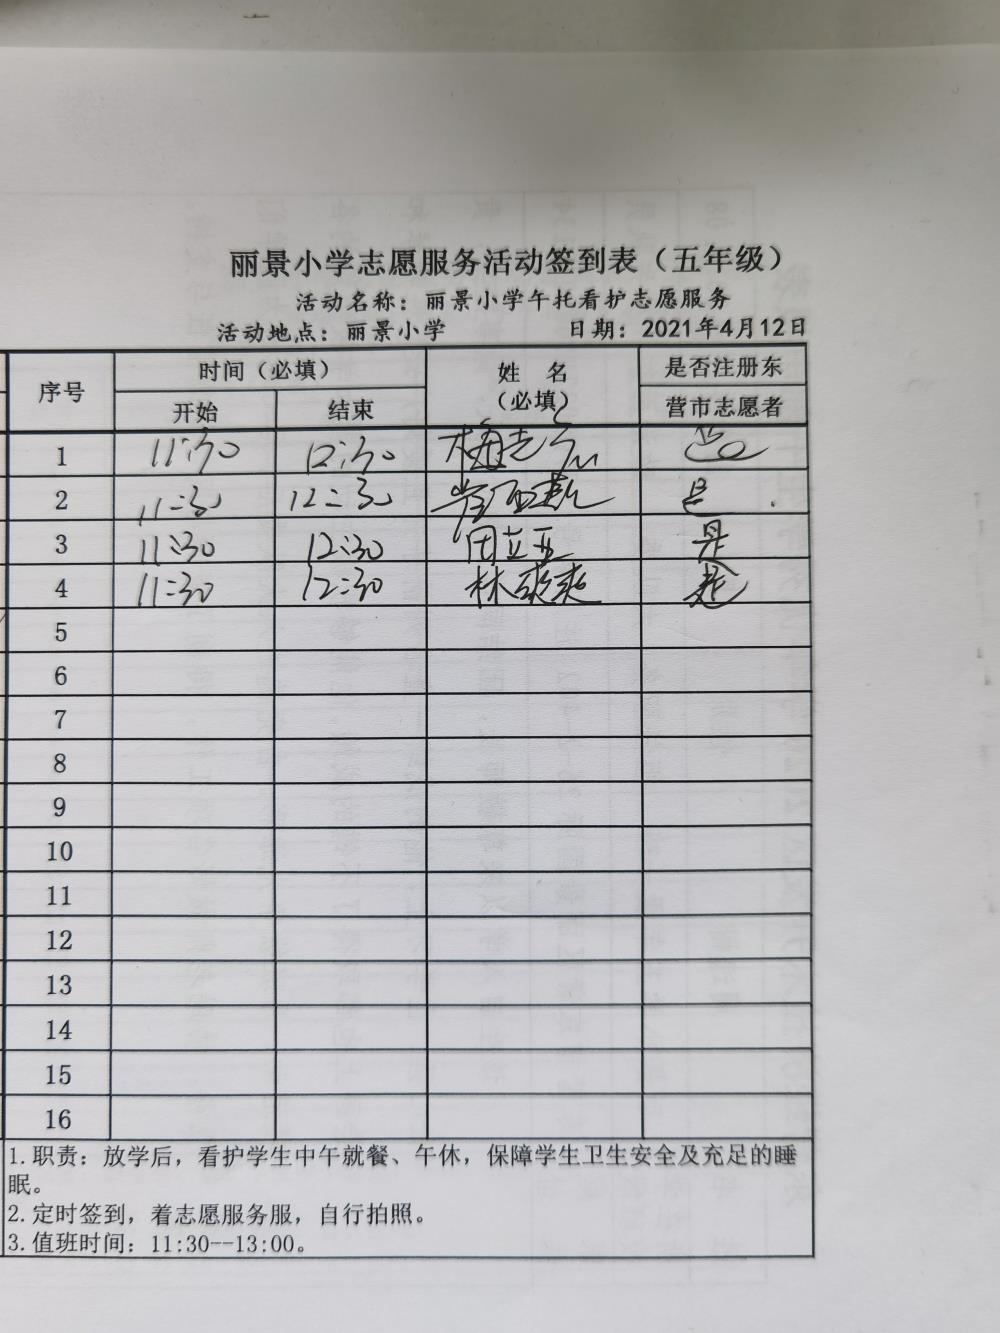 丽景小学志愿服务活动签到表（五年级）
活动名称：丽景小学午托看护志愿服务
活动地点：丽景小学 日期：2021年4月12日
序号 时间（必填） 姓 名 是否注册东
开始 结束 （必填） 营市志愿者
1 11:30 12:30
2 11:30 12:30 是
3 11:30 12:30 田立亚 是
4 11:30 12:30 林爽爽 是
5
6
7
8
9
10
11
12
13
14
15
16
1.职责：放学后，看护学生中午就餐、午休，保障学生卫生安全及充足的睡
眠。
2.定时签到，着志愿服务服，自行拍照。
3.值班时间：11:30--13:00。